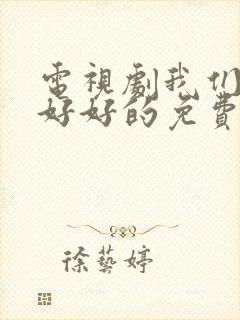 電視劇我们
好好的免費
徐藝婷